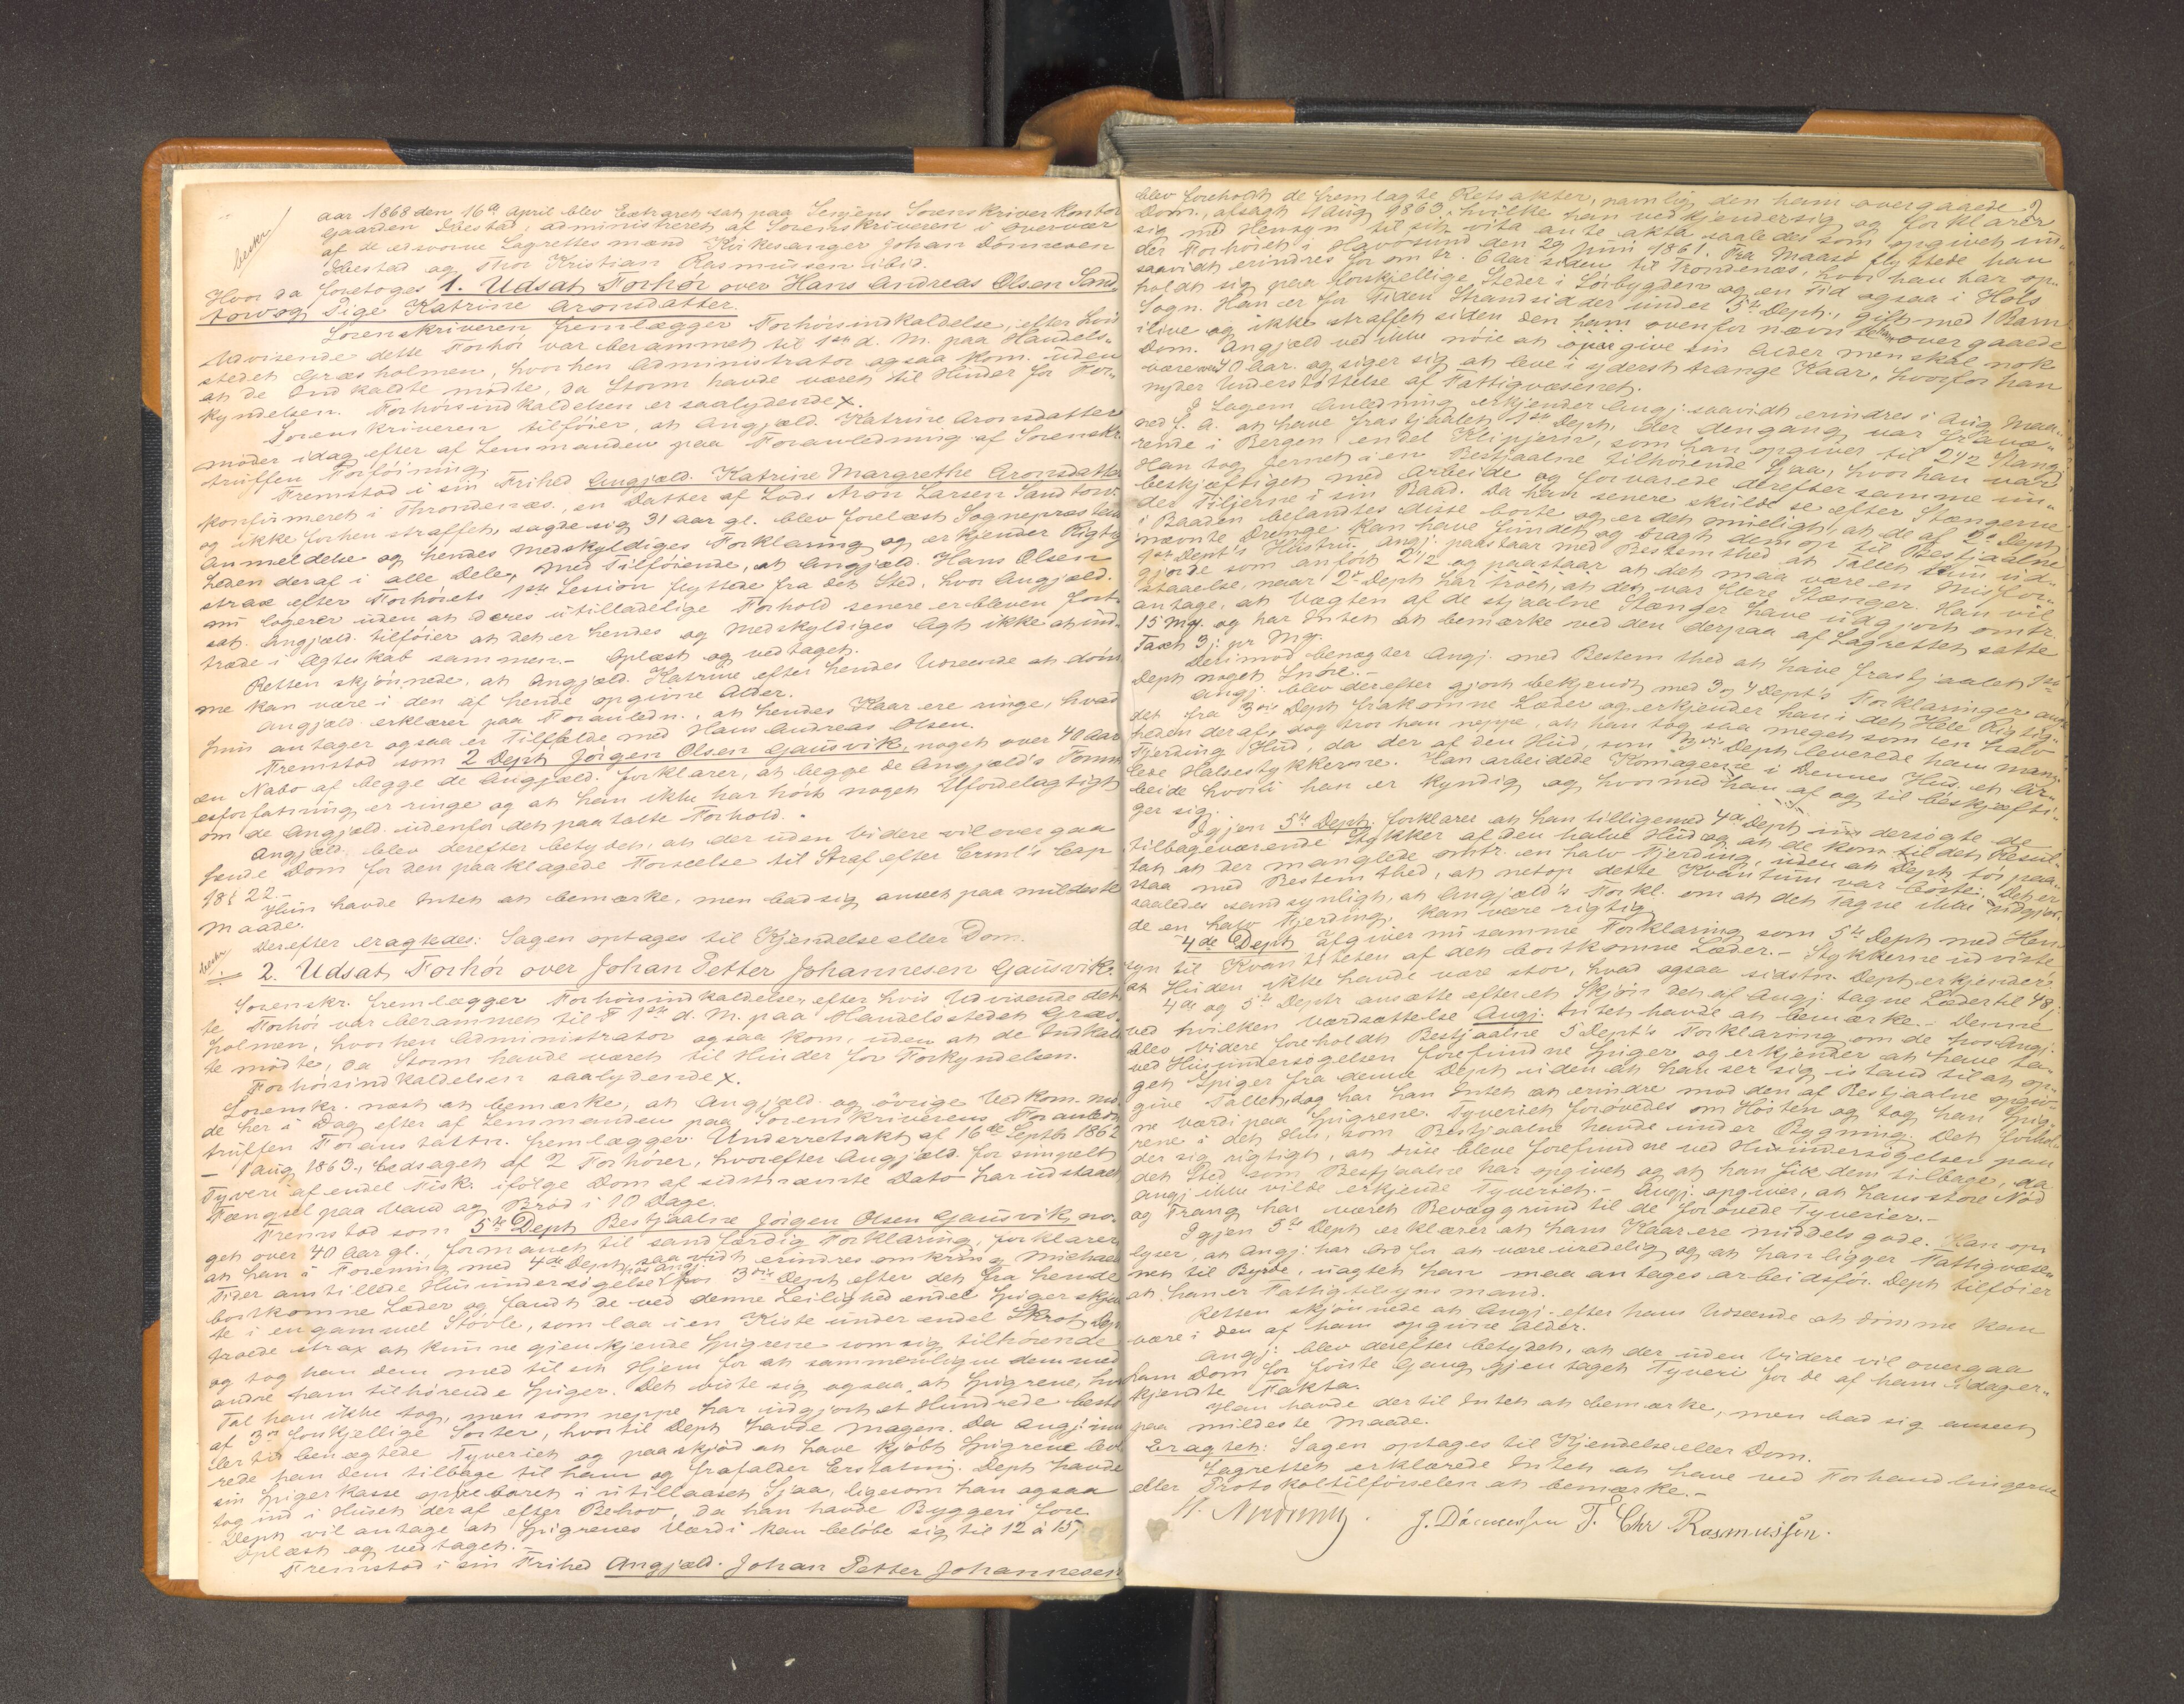 beskr
aar 1868 den 16de April blev Extraret sat paa Senjens Sorenskriver kontor
gaarden Ibestad, administreret af Sorenskriveren i overvær
af de edsvorne Lagrettesmænd Kirkesanger Johan Dønnesen
Ibestad og Thor Kristian Rasmussen ibid.
Hvor da foretoges 1. Udsat Forhör over Hans Andreas Olsen Sand-
torv og Pige Katrine Aronsdatter.
Sorenskriveren fremlægger Forhörsindkaldelse, efter hvis
Udvisende dette Forhör var berammet til 1ste d. M. paa Handels-
stedet Græsholmen, hvorhen Administrator ogsaa kom, uden
at de Indkaldte mødte, da Storm havde været til Hinder for For-
kyndelsen. Forhörsindkaldelsen er saalydende X.
Sorenskriveren tilföier, at Angjæld. Katrine Aronsdatter
möder idag efter af Lensmanden paa Foranledning af Sorenskr.
truffen Forföining.
Fremstod i sin Frihed Angjæld. Katrine Margrethe Aronsdatter
konfirmeret i Throndenæs, en Datter af Lods Aron Larsen Sandtorv
og ikke forhen straffet, sagde sig 31 aar gl. blev forelæst Sognepræstens
Anmeldelse og hendes Medskyldiges Forklaring og erkjender Rigtig
heden deraf i alle Dele, med Tilförende, at Angjæld. Hans Olsen
strax efter Forhörets 1ste Session flyttede fra det Sted, hvor Angjæld.
nu logerer uden at deres utilladelige Forhold senere er bleven fort-
sat. Angjæld. tilföier at det er hendes og Medskyldiges Agt ikke at ind-
træde i Ægteskab sammen. - Oplæst og vedtaget.
Retten skjönnede, at Angjæld. Katrine efter hendes Udseende at döm-
me kan være i den af hende opgivne Alder.
Angjæld. erklærer paa Foranledn., at hendes Kaar ere ringe, hvad
hun antager ogsaa er Tilfælde med Hans Andreas Olsen.
Fremstod som 2 Dept Jörgen Olsen Gausvik, noget over 40 Aar
en Nabo af begge de Angjæld. forklarer, at begge de Angjæld's Formu-
esforfatning er ringe og at han ikke har hört noget Ufordelagtigt
om de Angjæld. udenfor det paatalte Forhold.
Angjæld. blev derefter betydet, at der uden Videre vil overgaa
hende Dom for den paaklagede Forseelse til Straf efter Crml's Cap
18 § 22.
Hun havde Intet at bemærke, men bad sig anseet paa mildeste
Maade.
Derefter eragtedes: Sagen optages til Kjendelse eller Dom.
beskr
2. Udsat Forhör over Johan Petter Johannesen Gausvik.
Sorenskr. fremlægger Forhörsindkaldelse, efter hvis Udvisende det-
te Forhör var berammet til 1ste d. M. paa Handelsstedet Græs-
holmen, hvorhen Administrator ogsaa kom, uden at de Indkald-
te mödte, da Storm havde været til Hinder for Forkyndelsen.
Forhörsindkaldelsen saalydende X.
Sorenskr. næst at bemærke, at Angjæld. og övrige Vedkom. mö-
de her i Dag efter af Lensmanden paa Sorenskriverens Foranledn.
truffen Foranstaltn. fremlægger Underretsakt af 16de Septb 1862
- 1 aug 1863, ledsaget af 2 Forhörer, hvorefter Angjæld. for simpelt
Tyveri af endel Fisk. ifölge Dom af sidstnævnte Dato har udstaaet
Fængsel paa Vand og Bröd i 10 Dage.
Fremstod som 5te Dept Bestjaalne Jörgen Olsen Gausvik, no-
get over 40 Aar gl., formanet til sandfærdig Forklaring, forklarer
at han i Forening med 4de Dept saavidt erindres omkring Michaeli
Tider anstillede Husundersögelse hos Angj. for 3die Dept efter det fra hende
bortkomne Læder og fandt de ved denne Leilighed endel Spiger skjul-
te i en gammel Stövle, som laa i en Kiste under endel Skrot. Dept
troede strax at kunne gjenkjende Spigrene som sig tilhörende
og tog han dem med til sit Hjem for at sammenligne dem med
andre ham tilhörende Spiger. Det viste sig ogsaa, at Spigrene, hvis
Tal han ikke tog, men som neppe har udgjort et Hundrede bestod
af 3de forskjellige Sorter, hvortil Dept havde Magen. Da Angj. imid-
lertid benægtede Tyveriet og paaskjöd at have kjöbt Spigrene leve-
rede han dem tilbage til ham og frafalder Erstatning. Dept havde
sin Spigerkasse opbevaret i utillaaset Sjaa, ligesom han ogsaa
tog ind i Huset deraf efter Behov, da han havde Byggeri fore.
Dept vil antage at Spigrenes Værdi kan belöbe sig til 12 à 15 ß
Oplæst og vedtaget. -
Fremstod i sin Frihed Angjæld. Johan Petter Johannesen
2
blev foreholdt de fremlagte Retsakter, navnlig den ham overgaaede
Dom, afsagt 1 aug 1863, hvilke han vedkjender sig og forklarer
sig med Hensyn til sit vita ante akta saaledes som opgivet un-
der Forhöret i Havösund den 29 Juni 1861. Fra Maasö flyttede han
saavidt erindres for omtr. 6 Aar siden til Trondenæs, hvor han har op-
holdt sig paa forskjellige Steder i Sörbygden og en Tid ogsaa i Hols
Sogn. Han er for Tiden Strandsidder under 3die Dept., gift med 1 Barn
ilive og ikke straffet siden den ham ovenfor nævnte overgaaede
Dom. Angjæld ved ikke nöie at opgive sin Alder men skal nok
være over 40 Aar. og siger sig at leve i yderst trange Kaar, hvorfor han
nyder Understöttelse af Fattigvæsenet.
I Sagens Anledning erkjender Angj. saavidt erindres i Aug. Maa-
ned f. A. at have frastjaalet 1ste Dept, der dengang var fravæ-
rende i Bergen, endel Klipjern, som han opgiver til 2 1/2 Stang
Han tog Jernet i en Bestjaalne tilhörende Sjaa, hvor han var
beskjæftiget med Arbeide og forvarede derefter samme un-
der Tiljerne i sin Baad. Da han senere skulde se efter Stængerne
i Baaden befandtes disse borte og er det mueligt, at de af 2de Dept
nævnte Drenge kan have fundet og bragt dem op til Bestjaalne
1ste Dept's Hustru. Angj. paastaar med Bestemthed at Tallet kun ud-
gjorde som anfört 2 1/2 og paastaar at det maa være en Misfor-
staaelse, naar 2de Dept har troet, at der var flere Stænger. Han vil
antage, at Vægten af de stjaalne Stænger have udgjort omtr.
15 Mg. og har Intet at bemærke ved den derpaa af Lagrettet satte
Taxt 3 ß pr Mg.
Derimod benægter Angj. med Bestemthed at have frastjaalet 1ste
Dept noget Snöre. -
Angj. blev derefter gjort bekjendt med 3 og 4 Dept's Forklaringer ang.
det fra 3die Dept frakomne Læder og erkjender han i det Hele Rigtig-
heden deraf, dog tror han neppe, at han tog saa meget som en halv
Fjerding Hud, da der af den Hud, som 3die Dept leverede ham mang-
lede Halsestykkerne. Han arbeidede Komagerne i Dennes Hus, et Ar-
beide hvori han er kyndig og hvormed han af og til beskjæfti-
ger sig.
Igjen 5te Dept. forklarer at han tilligemed 4de Dept undersögte de
tilbageværende Stykker af den halve Hud og at de kom til det Resul-
tat at der manglede omtr. en halv Fjerding, uden at Dept tör paa-
staa med Bestemthed, at netop dette Kvantum var borte. Det er
saaledes sandsynligt, at Angjæld's Forkl. om at det tagne ikke udgjor-
de en halv Fjerding, kan være rigtig.
4de Dept afgiver nu samme Forklaring som 5te Dept med Hen-
syn til Kvantiteten af det bortkomne Læder. - Stykkerne udviste
at Huden ikke havde være stor, hvad ogsaa sidstn. Dept erkjender.
4de og 5te Dept ansætte efter et Skjön det af Angj. tagne Læder til 48 ß
ved hvilken Værdsættelse Angj. Intet havde at bemærke. - Denne
blev videre foreholdt Bestjaalne 5 Dept's Forklaring om de hos Angj.
ved Husundersögelsen forefundne Spiger og erkjender at have ta-
get Spiger fra denne Dept uden at han ser sig istand til at op-
give Tallet, dog har han Intet at erindre mod den af Bestjaalne opgiv-
ne Værdi paa Spigrene. Tyveriet foröve­des om Hösten og tog han Spig-
rene i det Hus, som Bestjaalne havde under Bygning. Det forhol-
der sig rigtigt, at disse bleve forefundne ved Husundersögelsen paa
det Sted som Bestjaalne har opgivet og at han fik dem tilbage, da
Angj. ikke vilde erkjende Tyveriet. - Angj. opgiver, at hans store Nöd
og Trang har været Bevæggrund til de forövede Tyverier. -
Igjen 5te Dept erklærer at hans Kaar ere middels gode. Han op-
lyser, at Angj. har Ord for at være uredelig og at han ligger Fattigvæse-
net til Byrde, uagtet han maa antages arbeidsför. Dept tilföier
at han er Fattigtilsynsmand.
Retten skjönnede at Angj. efter hans Udseende at dömme kan
være i den af ham opgivne Alder.
Angj. blev derefter betydet, at der uden Videre vil overgaa
ham Dom for förste Gang gjentaget Tyveri for de af ham idag er-
kjendte Fakta.
Han havde dertil Intet at bemærke, men bad sig anseet
paa mildeste Maade.
Eragtet: Sagen optages til Kjendelse eller Dom.
Lagrettet erklærede Intet at have ved Forhandlingerne
eller Protokoltilförselen at bemærke. -
J. Dönnessen T. Chr Rasmussen.